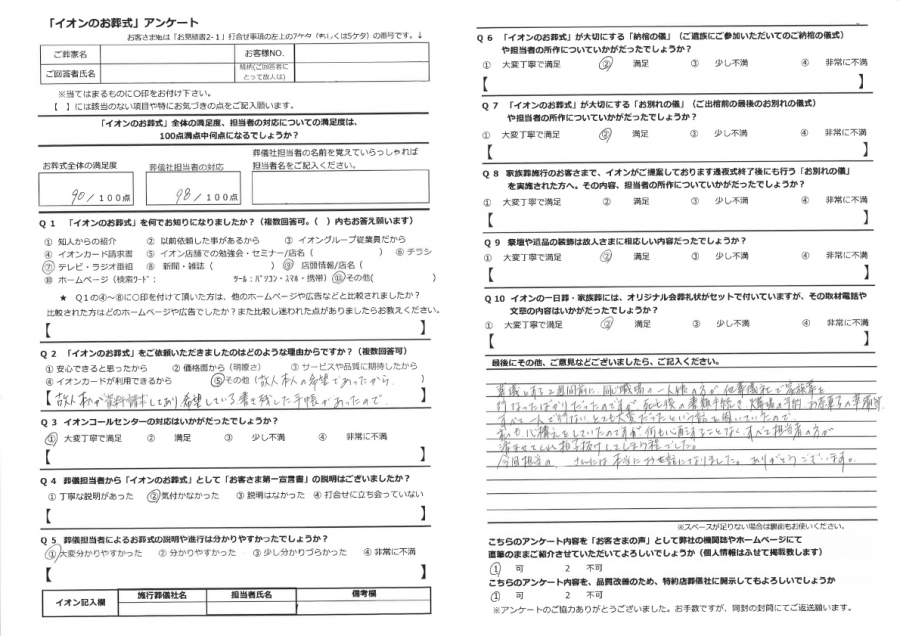 「イオンのお葬式」アンケート
お客さま№は「お見積書2-1」打合せ事項の左上の7ケタ（もしくは5ケタ）の番号です。↓
ご葬家名 お客様NO.
ご回答者氏名 続柄(ご回答者にとって故人は)
※当てはまるものに○印をお付け下さい。
【 】には該当のない項目や特にお気づきの点をご記入願います。
「イオンのお葬式」全体の満足度、担当者の対応についての満足度は、
100点満点中何点になるでしょうか？
お葬式全体の満足度 葬儀社担当者の対応 葬儀社担当者の名前を覚えていらっしゃれば
担当者名をご記入ください。
90/100点 98/100点
Q 1 「イオンのお葬式」を何でお知りになりましたか？（複数回答可。（ ）内もお答え願います）
① 知人からの紹介 ② 以前依頼した事があるから ③ イオングループ従業員だから
④ イオンカード請求書 ⑤ イオン店舗での勉強会・セミナー/店名（ ） ⑥ チラシ
⑦ テレビ・ラジオ番組 ⑧ 新聞・雑誌（ ） ⑨ 店頭情報/店名（ ）
⑩ ホームページ（検索ﾜｰﾄﾞ： ﾂｰﾙ：ﾊﾟｿｺﾝ・ｽﾏﾎ・携帯）⑪その他( )
★ Q１の④～⑧に○印を付けて頂いた方は、他のホームページや広告などと比較されましたか？
比較された方はどのホームページや広告でしたか？また比較し迷われた点がありましたらお教えください。
【 】
Q 2 「イオンのお葬式」をご依頼いただきましたのはどのような理由からですか？（複数回答可）
①安心できると思ったから ② 価格面から（明瞭さ） ③ サービスや品質に期待したから
④イオンカードが利用できるから ⑤その他（故人本人の希望であったから ）
【故人本人が資料請求しており希望している事を残した手帳があったので 】
Q 3 イオンコールセンターの対応はいかがだったでしょうか？
① 大変丁寧で満足 ② 満足 ③ 少し不満 ④ 非常に不満
【 】
Q 4 葬儀担当者から「イオンのお葬式」として「お客さま第一宣言書」の説明はございましたか？
① 丁寧な説明があった ②気付かなかった ③ 説明はなかった ④ 打合せに立ち会っていない
【 】
Q 5 葬儀担当者によるお葬式の説明や進行は分かりやすかったでしょうか？
①大変分かりやすかった ② 分かりやすかった ③ 少し分かりづらかった ④ 非常に不満
【 】
イオン記入欄 施行葬儀社名 担当者氏名 備考欄
Q 6 「イオンのお葬式」が大切にする「納棺の儀」（ご遺族にご参加いただいてのご納棺の儀式）
や担当者の所作についていかがだったでしょうか？
① 大変丁寧で満足 ② 満足 ③ 少し不満 ④ 非常に不満
【 】
Q 7 「イオンのお葬式」が大切にする「お別れの儀」（ご出棺前の最後のお別れの儀式）
や担当者の所作についていかがだったでしょうか？
① 大変丁寧で満足 ② 満足 ③ 少し不満 ④ 非常に不満
【 】
Q 8 家族葬施行のお客さまで、イオンがご提案しております通夜式終了後にも行う「お別れの儀」
を実施された方へ。その内容、担当者の所作についていかがだったでしょうか？
① 大変丁寧で満足 ② 満足 ③ 少し不満 ④ 非常に不満
【 】
Q 9 祭壇や遺品の装飾は故人さまに相応しい内容だったでしょうか？
① 大変丁寧で満足 ② 満足 ③ 少し不満 ④ 非常に不満
【 】
Q 10 イオンの一日葬・家族葬には、オリジナル会葬礼状がセットで付いていますが、その取材電話や
文章の内容はいかがだったでしょうか？
① 大変丁寧で満足 ② 満足 ③ 少し不満 ④ 非常に不満
【 】
最後にその他、ご意見などございましたら、ご記入ください。
葬儀とする2週間前に、同じ職場の一人娘の方が他葬儀社で家族葬を
行なったばかりだったのですが死亡後の書類手続き、火葬場の手付、お茶菓子の準備等
すべて一人で行ないとても大変だったという話を聞いていたので、
私も心構えをしていたのですが何もに心配することなく、すべて担当者の方が
済ませてくれ拍子抜けしてしまう程でした。
今回担当の さんには本当にお世話になりました。ありがとうございます。
※スペースが足りない場合は裏面もお使いください。
こちらのアンケート内容を「お客さまの声」として弊社の機関誌やホームページにて
直筆のままご紹介させていただいてよろしいでしょうか（個人情報はふせて掲載致します）
① 可 2 不可
こちらのアンケート内容を、品質改善のため、特約店葬儀社に開示してもよろしいでしょうか
① 可 2 不可
※アンケートのご協力ありがとうございました。お手数ですが、同封の封筒にてご返送願います。